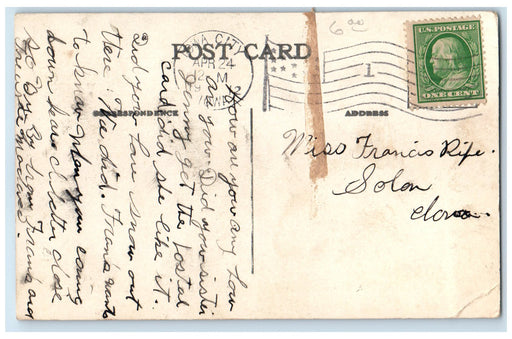 6 00
POST CARD
IOWA CITY
APR 24
12 M
IOWA
1
U.S. POSTAGE
ONE CENT
CORRESPONDENCE
ADDRESS
How are you any how
as your Did your sister
Jenny get the postal
card did she like it.
Did you have snow out
there. We did. Frank wants
to know when you coming
down have
So By By from Frank and
Miss Francis Ripe.
Solon
Iowa.